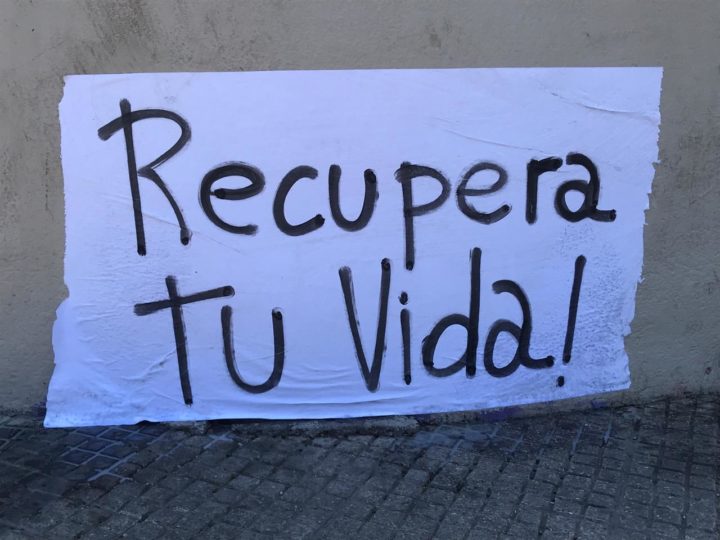 Recupera
Tu Vida!